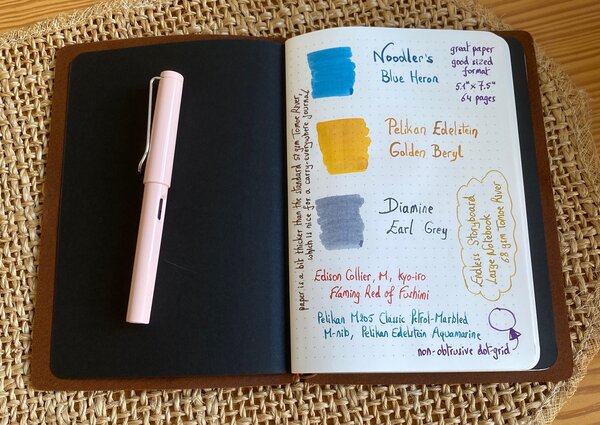 Noodler's
Blue Heron
great paper
good sized
format
5.1" x 7.5"
64 pages
Pelikan Edelstein
Golden Beryl
Diamine
Earl Grey
Endless Storyboard
Large Notebook
68 gsm Tomoe River
paper is a bit thicker than the standard 52 gsm Tomoe River,
which is nice for a carry-everywhere journal
Edison Collier, M, Kyo-iro
Flaming Red of Fushimi
Pelikan M205 Classic Petrol-Marbled
M-nib, Pelikan Edelstein Aquamarine
non-obtrusive dot-grid